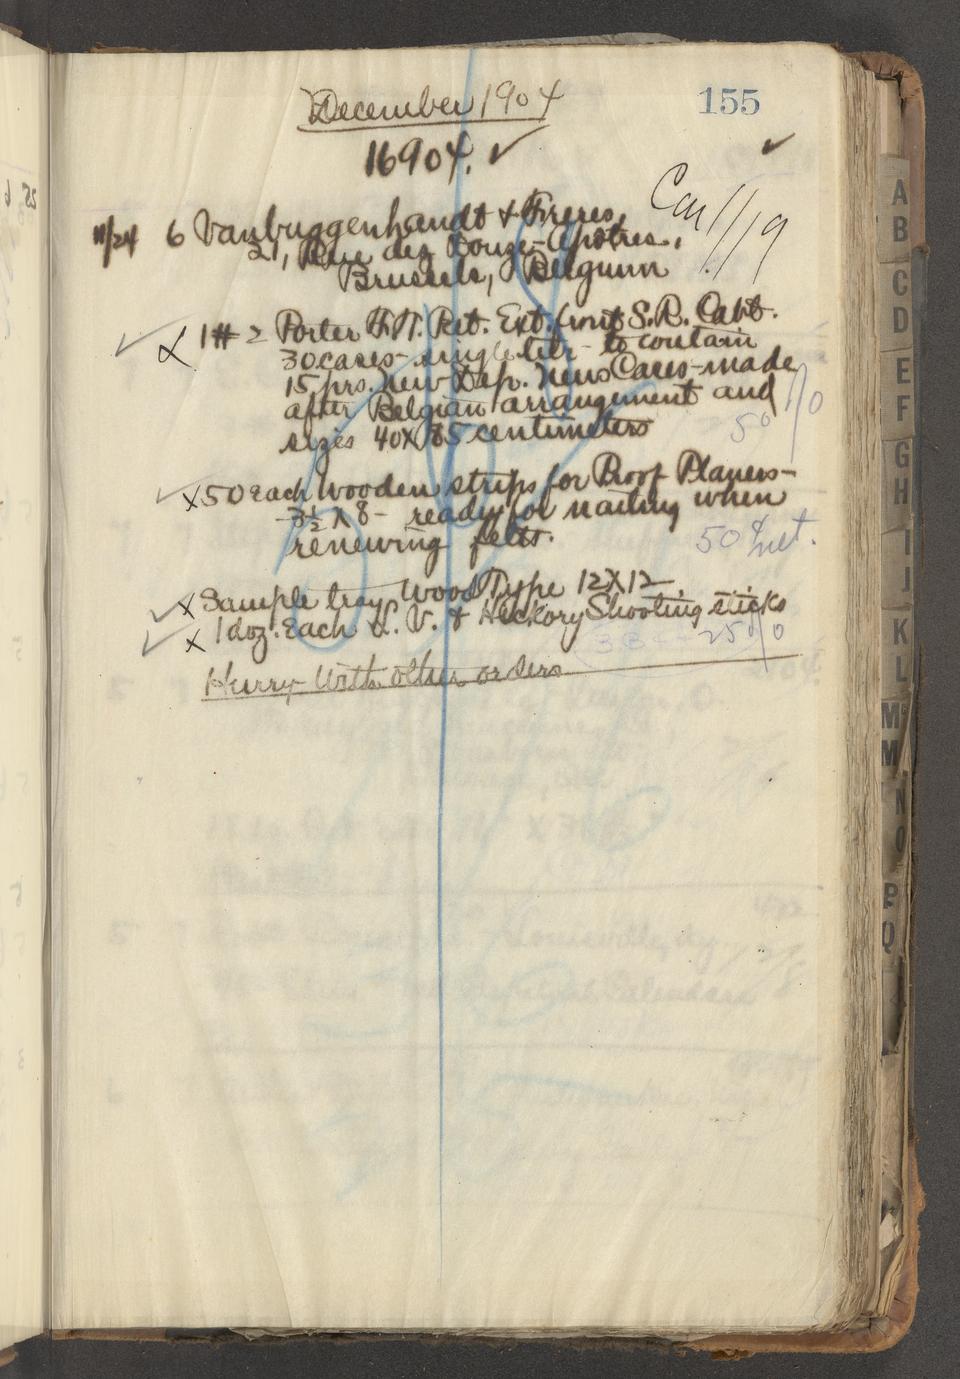 155
December 1904
16904. ✓
11/24 6 Vanbuggenhandt & Freres,
21, Rue des Douze-Apôtres,
Brussels, Belgium
Car 1/19
1 # 2 Porter H.T. Ext. front S.R. Cabt.
30 cases - single tier - to contain
15 prs. New Dep. News Cases - made
after Belgian arrangement and
sizes 40 X 85 centimeters
50 %
X 50 each wooden strips for Proof Planers -
3½ X 8 - ready for nailing when
renewing felts.
50¢ net.
X Sample tray Wood Type 12X12
X 1 doz. Each L. V. & Hickory Shooting sticks
25 %
Hurry With other orders
A
B
C
D
E
F
G
H
I
J
K
L
M
M
N
O
P
Q